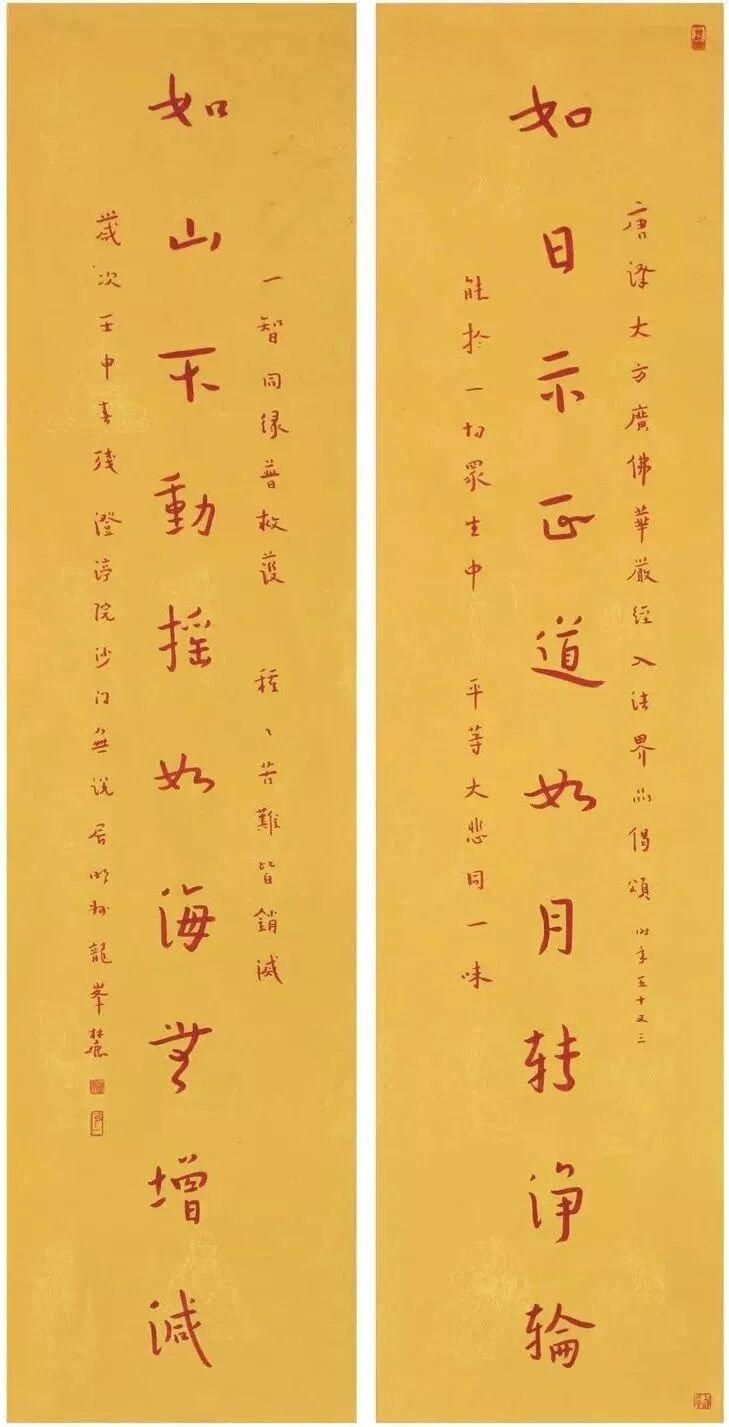 唐譯大方廣佛華嚴經入法界品偈頌 时年五十又三
如日示正道如月轉淨輪
能於一切眾生中 平等大悲同一味
一智同緣普救護 種〻苦難皆銷滅
如山不動搖如海無增減
歲次壬申春殘澄渟院沙门無说居明州龍峯麓